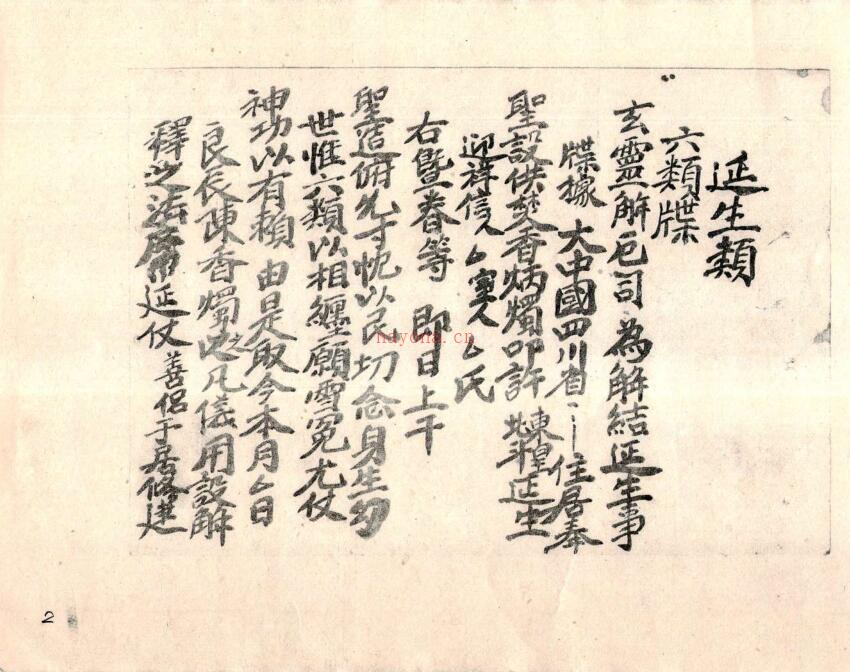 延生類
六類牒
玄靈解厄司 為解結延生事
牒據 大中國四川省 住居奉
聖設供焚香炳燭叩許 東皇 北斗 延生
迎祥信人厶室人厶氏
右暨眷等 即日上干
聖造俯允寸忱以 切念身生勿
世惟六類以相纏願雪冤尤仗
神功以有賴 由是取今本月厶日
良辰陳香燭之凡儀用設解
釋之法 延仗 善侶于居修建
nayona.cn
2